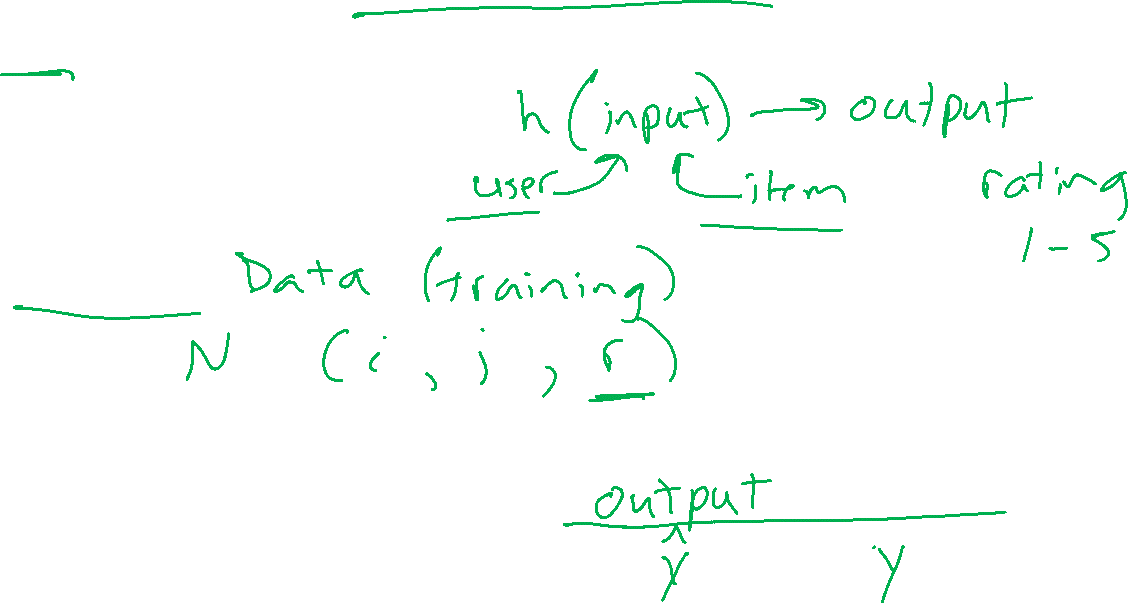 h(input) → output
user item rating
1-5
Data (training)
N (i, j, r)
output
Ŷ Y